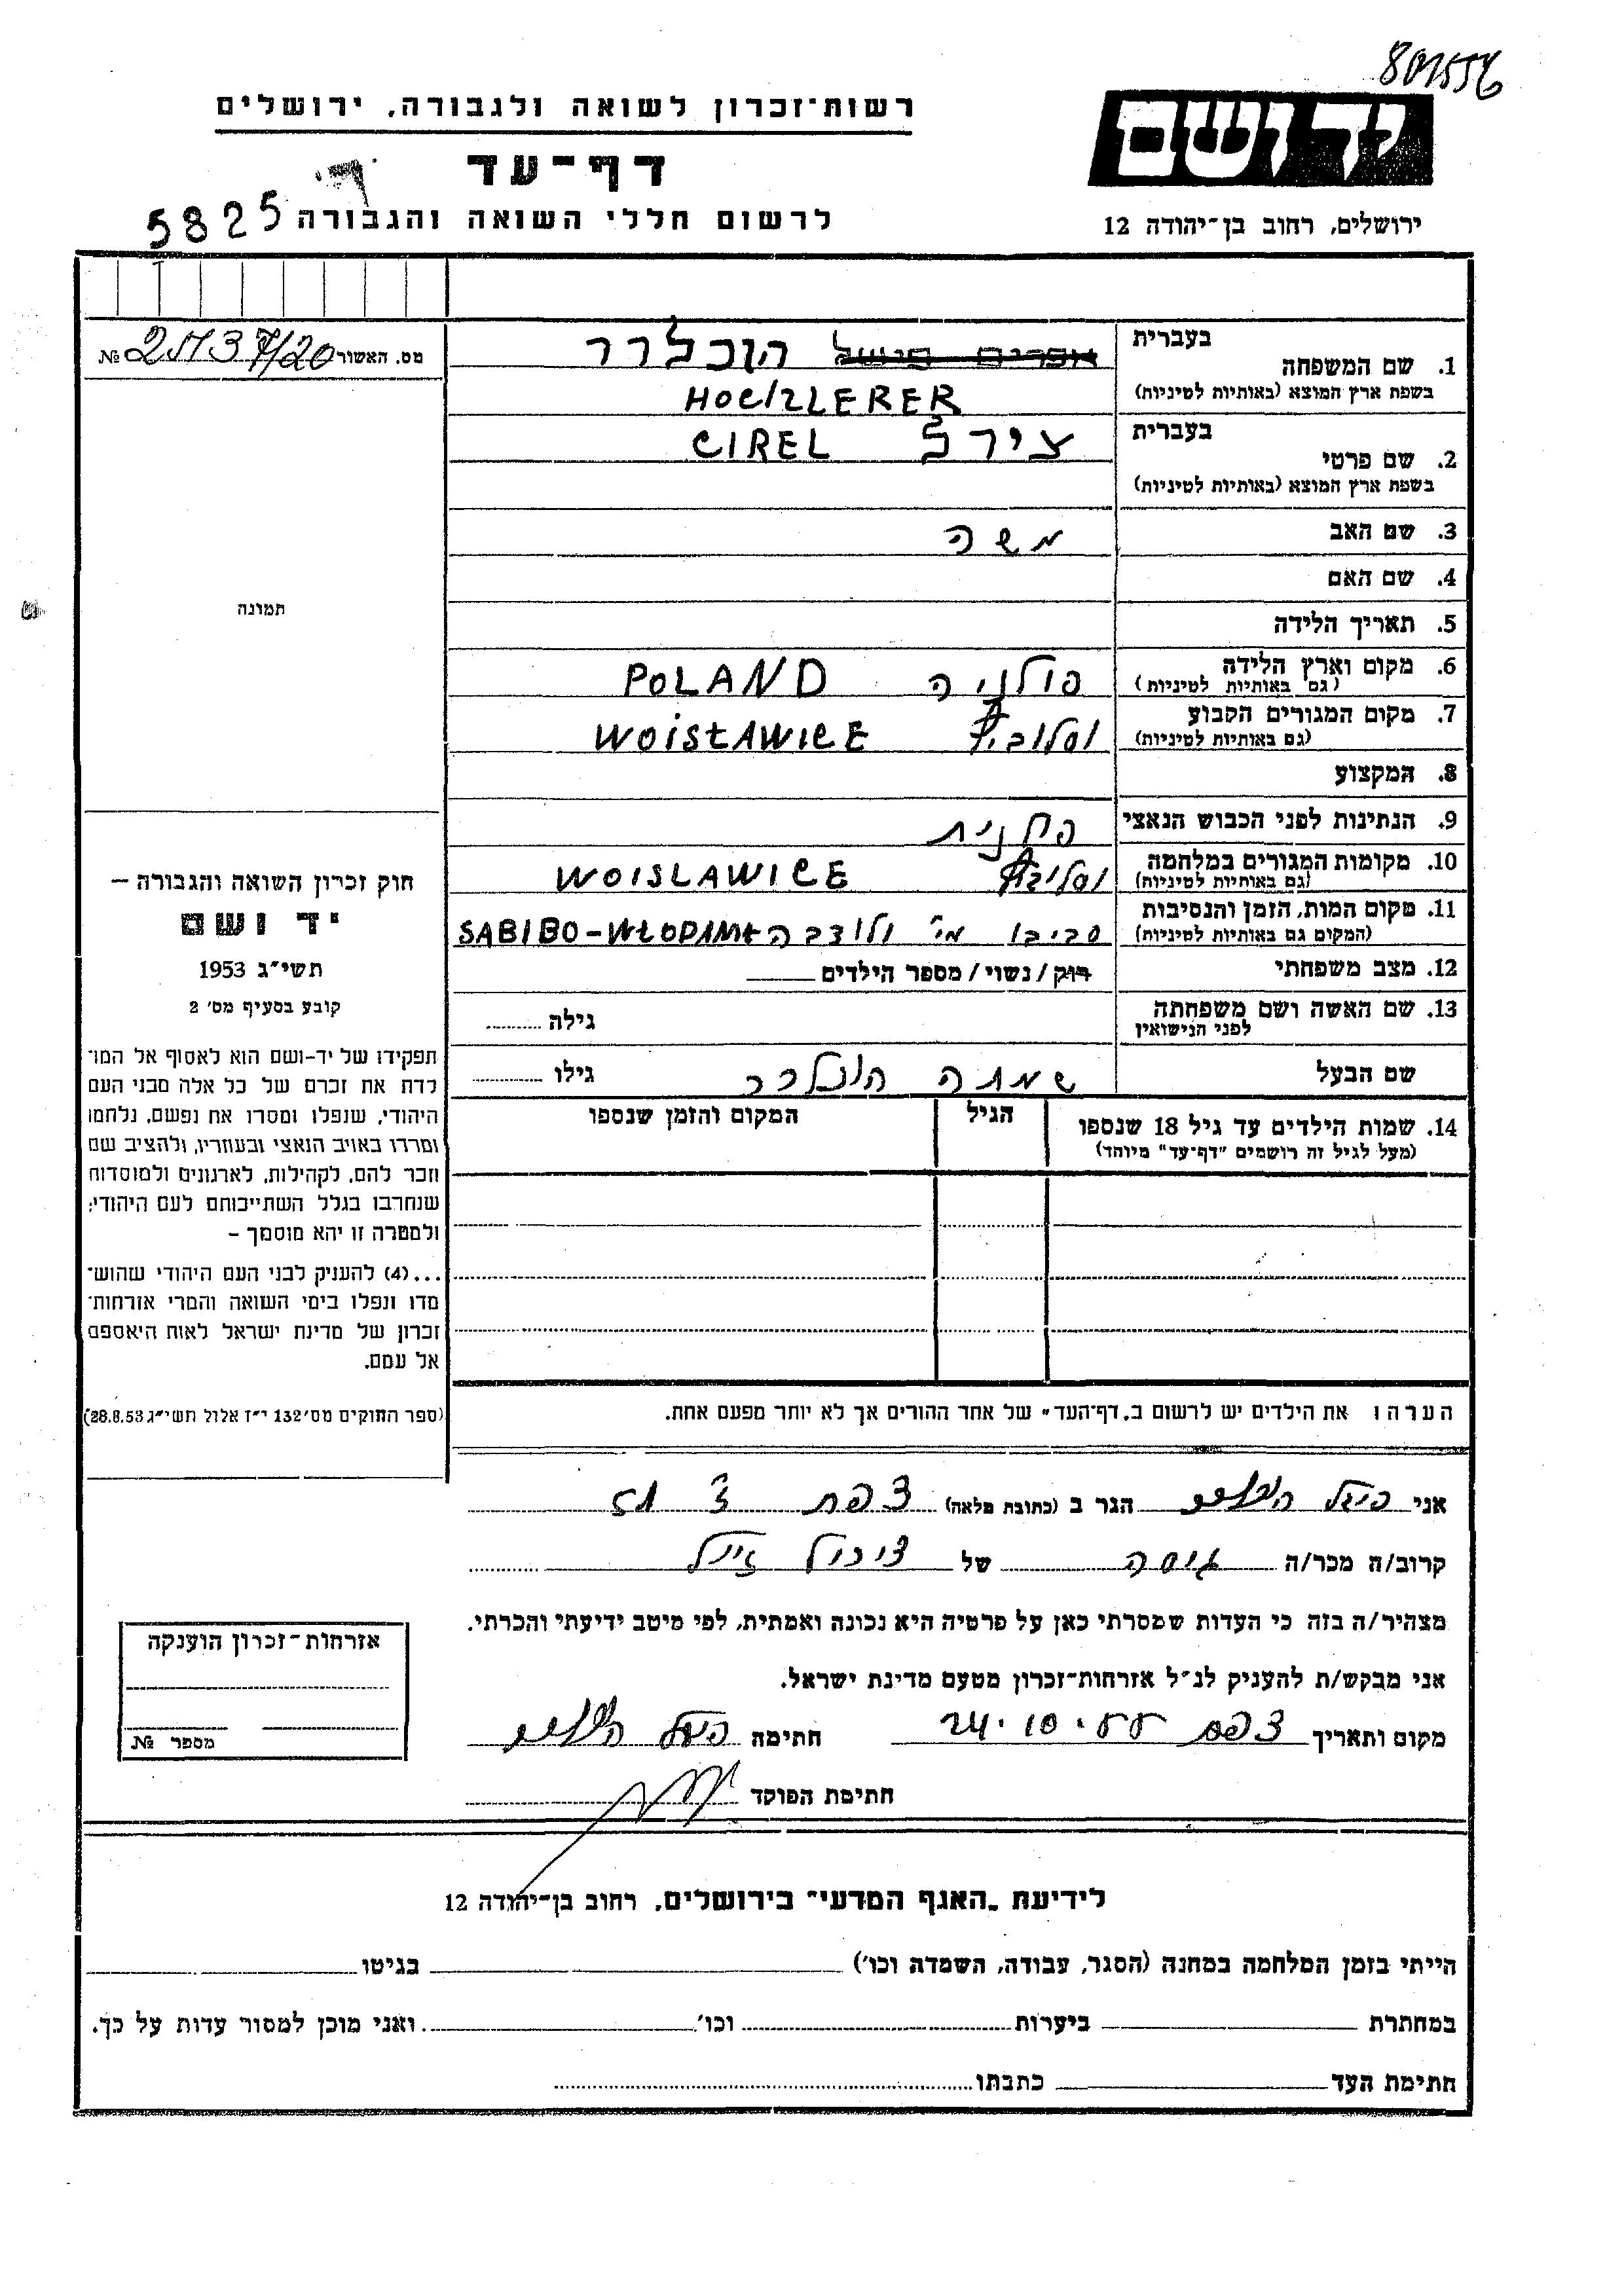 רשות-זכרון לשואה ולגבורה, ירושלים
דף-עד
לרשום חללי השואה והגבורה
5825
יד ושם
ירושלים, רחוב בן-יהודה 12
מס. האשור №
בעברית
1. שם המשפחה
הוכלרר
בשפת ארץ המוצא (באותיות לטיניות)
בעברית
2. שם פרטי
צירל CIREL
בשפת ארץ המוצא (באותיות לטיניות)
3. שם האב משה
4. שם האם
תמונה
5. תאריך הלידה
6. מקום וארץ הלידה פולניה POLAND
(גם באותיות לטיניות)
7. מקום המגורים הקבוע WOiSŁAWICE
(גם באותיות לטיניות)
8. המקצוע
9. הנתינות לפני הכבוש הנאצי
10. מקומות המגורים במלחמה WOISLAWICE
(גם באותיות לטיניות)
11. מקום המות, הזמן והנסיבות
(המקום גם באותיות לטיניות)
SABIBO-
12. מצב משפחתי רוק/נשוי/מספר הילדים
13. שם האשה ושם משפחתה גילה
לפני הנישואין
שם הבעל גילו
14. שמות הילדים עד גיל 18 שנספו הגיל המקום והזמן שנספו
(מעל לגיל זה רושמים "דף-עד" מיוחד)
חוק זכרון השואה והגבורה –
יד ושם
תשי״ג 1953
קובע בסעיף מס' 2
תפקידו של יד-ושם הוא לאסוף אל המו־
לדת את זכרם של כל אלה מבני העם
היהודי, שנפלו ומסרו את נפשם, נלחמו
ומרדו באויב הנאצי ובעוזריו, ולהציב שם
וזכר להם, לקהילות, לארגונים ולמוסדות
שנחרבו בגלל השתייכותם לעם היהודי;
ולמטרה זו יהא מוסמך –
...(4) להעניק לבני העם היהודי שהוש־
מדו ונפלו בימי השואה והמרי אזרחות־
זכרון של מדינת ישראל לאות היאספם
אל עמם.
(ספר החוקים מס' 132 י״ז אלול תשי״ג 28.8.53)
הערה: את הילדים יש לרשום ב„דף-העד" של אחד ההורים אך לא יותר מפעם אחת.
אני הגר ב (כתובת מלאה) צפת
קרוב/ה מכר/ה גיסה של
מצהיר/ה בזה כי העדות שמסרתי כאן על פרטיה היא נכונה ואמתית, לפי מיטב ידיעתי והכרתי.
אני מבקש/ת להעניק לנ״ל אזרחות-זכרון מטעם מדינת ישראל.
מקום ותאריך צפת חתימה
חתימת הפוקד
אזרחות-זכרון הוענקה
מספר №
לידיעת „האגף המדעי" בירושלים, רחוב בן-יהודה 12
הייתי בזמן המלחמה במחנה (הסגר, עבודה, השמדה וכו') בגיטו
במחתרת ביערות וכו' ואני מוכן למסור עדות על כך.
חתימת העד כתבתו